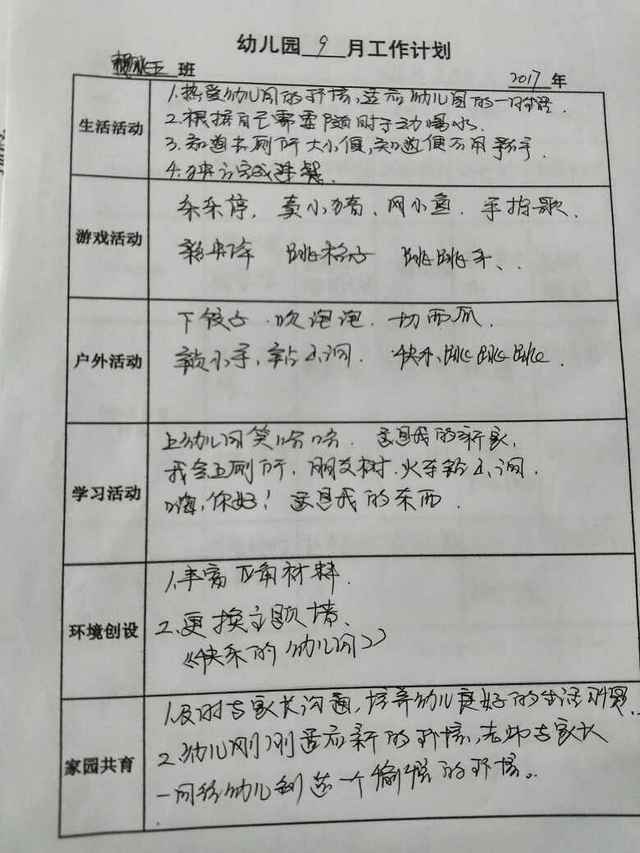 幼儿园 9 月工作计划
班
2017 年
生活活动
1.热爱幼儿园的环境,适应幼儿园的一日生活.
2.根据自己需要随时主动喝水.
3.知道去厕所大小便,知道便后用
4.独立完成进餐.
游戏活动
乐乐停, 卖小猪、网小鱼. 手指歌、
跳格子 跳跳乐、、
户外活动
下饺子.吹泡泡. 切西瓜.
小手,钻山洞. 快乐跳跳跳.
学习活动
上幼儿园笑哈哈. 这是我的新家,
我会上厕所. 朋友树.火车钻山洞.
嗨,你好! 这是我的东西.
环境创设
1.丰富区角材料.
2.更换主题墙、
《快乐的幼儿园》
家园共育
1.及时与家长沟通,培养幼儿良好的生活习惯.
2.幼儿刚刚适应新的环境,老师与家长
一同给幼儿创造一个愉悦的环境。